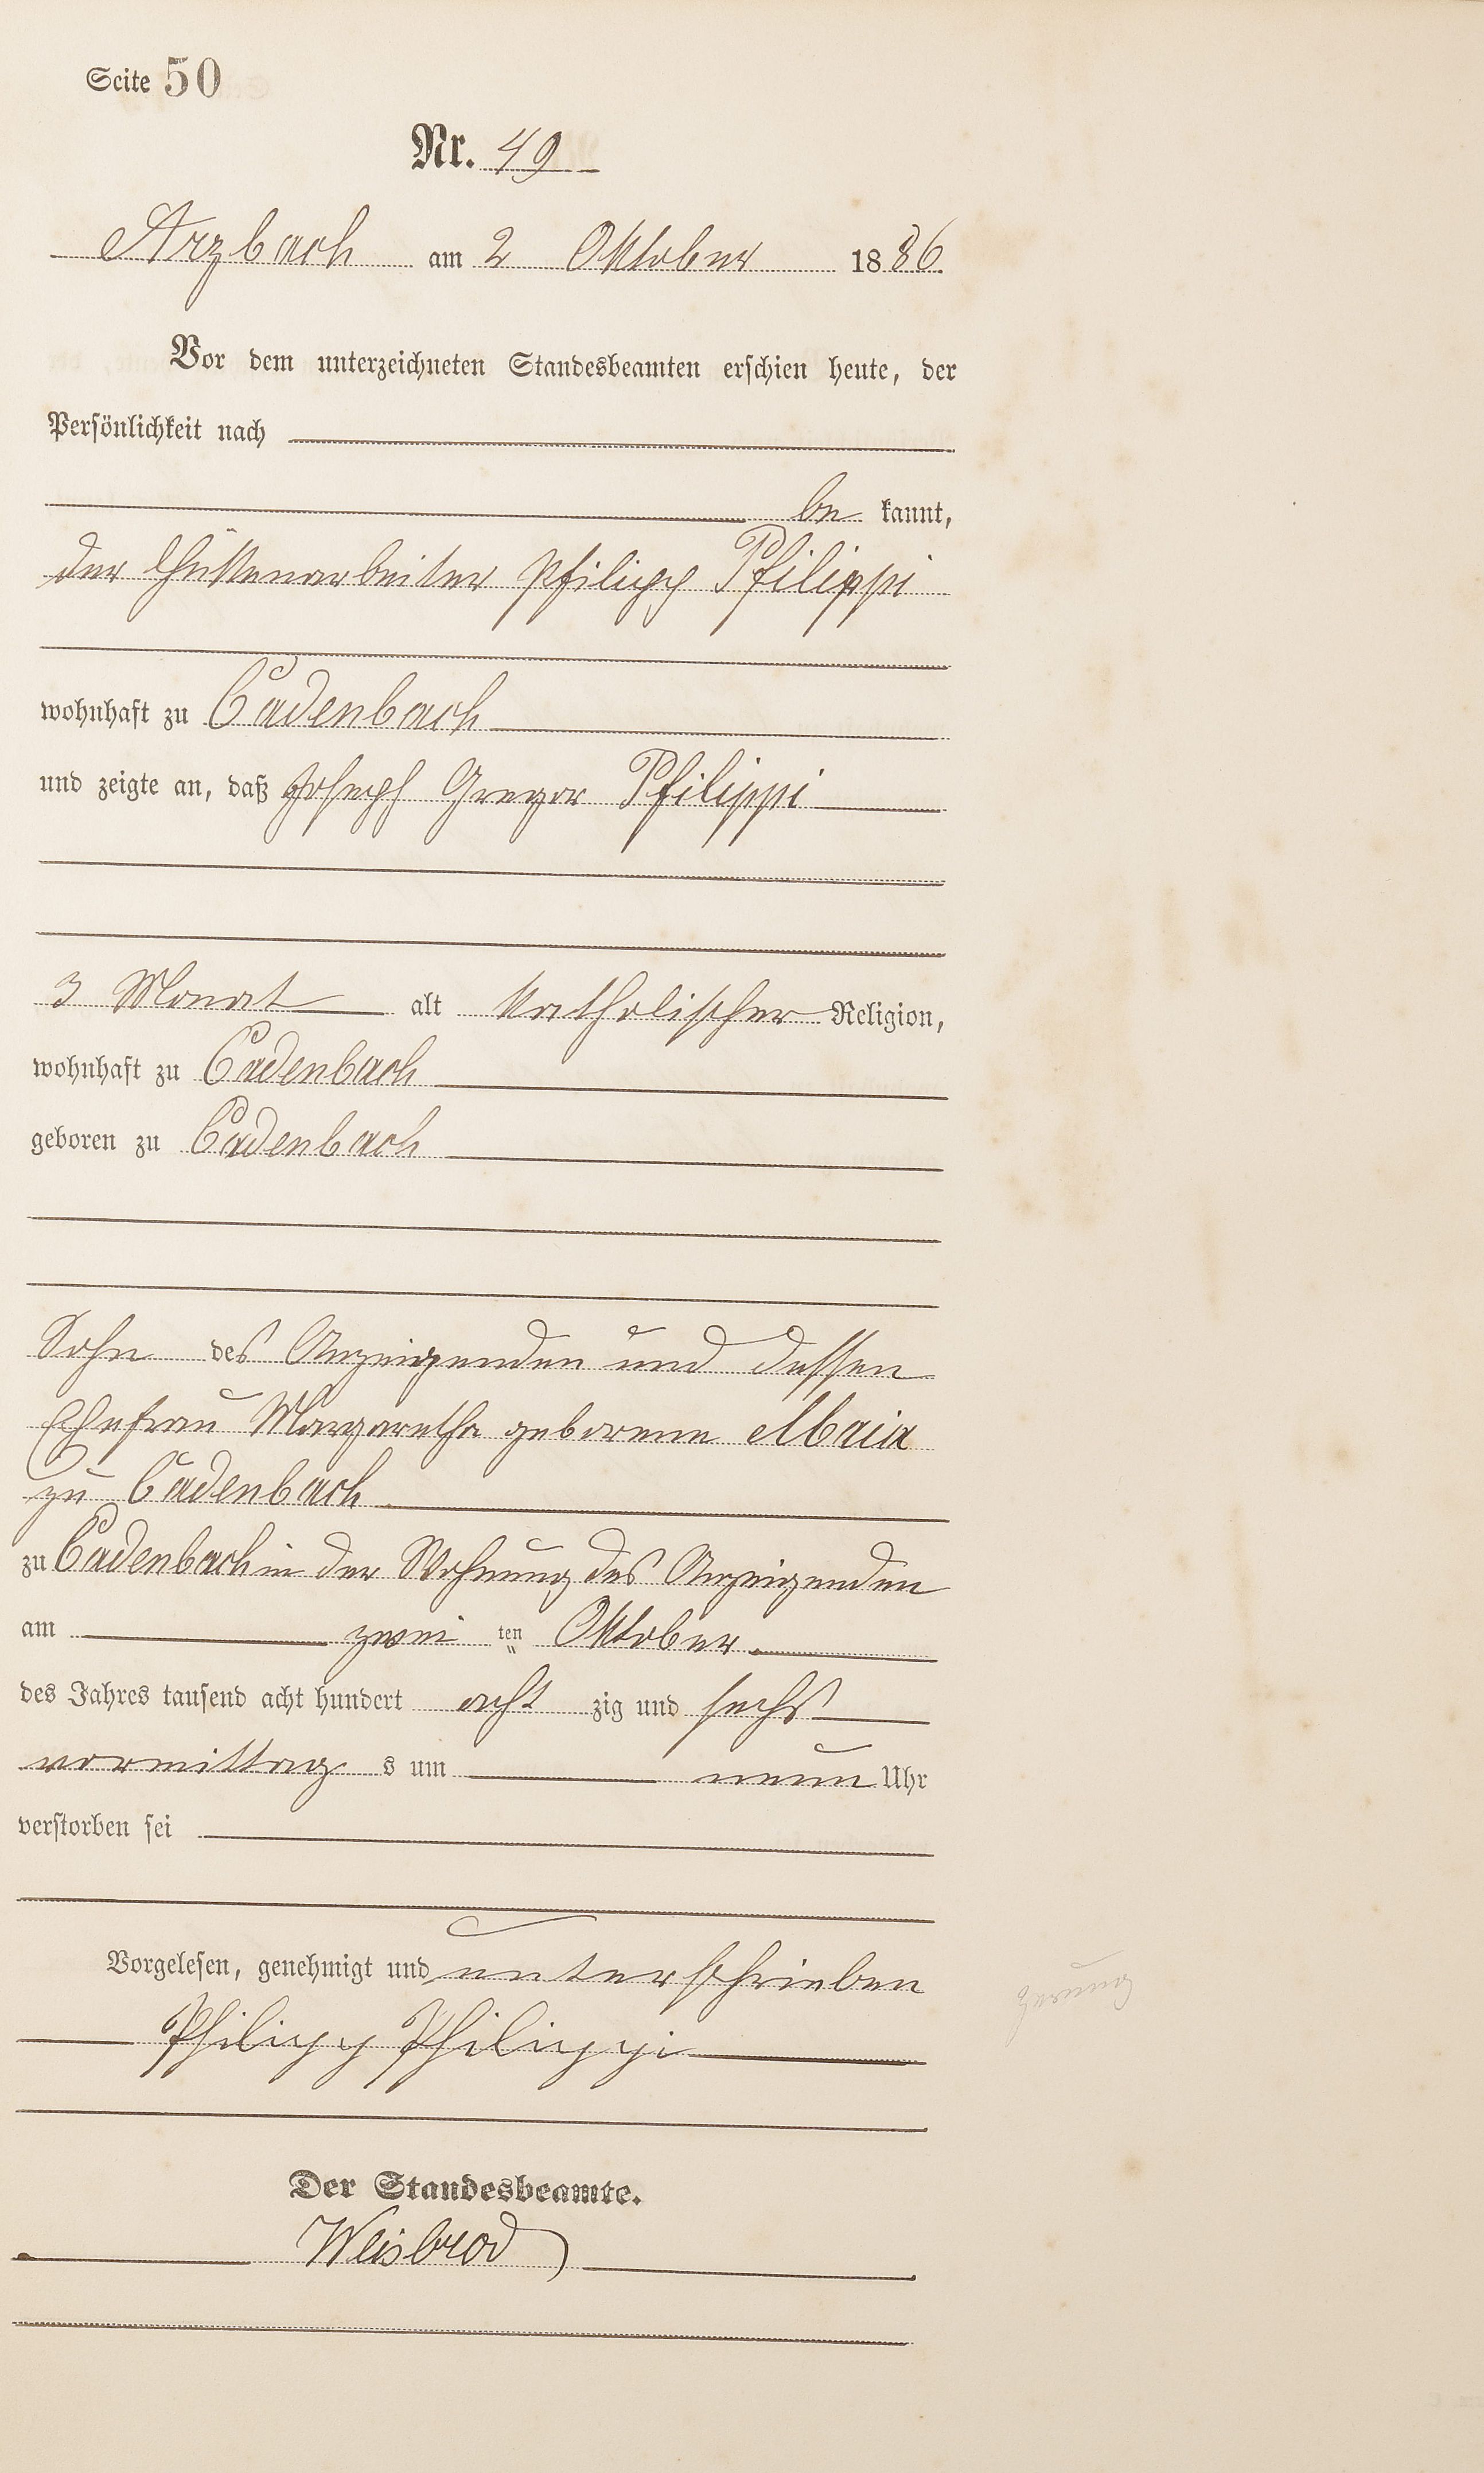 Seite 50
Nr. 49
Arzbach am 2 Oktober 1886.
Vor dem unterzeichneten Standesbeamten erschien heute, der
Persönlichkeit nach
be kannt,
der Hüttenarbeiter Philipp Philippi
wohnhaft zu Cadenbach
und zeigte an, daß Joseph Gregor Philippi
3 Monat alt katholischer Religion,
wohnhaft zu Cadenbach
geboren zu Cadenbach
Sohn des Anzeigenden und dessen
Ehefrau Margaretha geborene
zu Cadenbach
zu Cadenbach in der Wohnung des Anzeigenden
am zwei ten Oktober
des Jahres tausend acht hundert acht zig und sechs
vormittag s um neun Uhr
verstorben sei
Vorgelesen, genehmigt und unterschrieben
Philipp Philippi
Der Standesbeamte.
Weisbrod